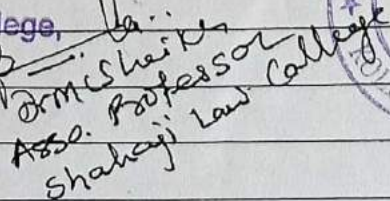 lege,
Dr M C Sheikh
Asso. Professor
Shahaji Law College